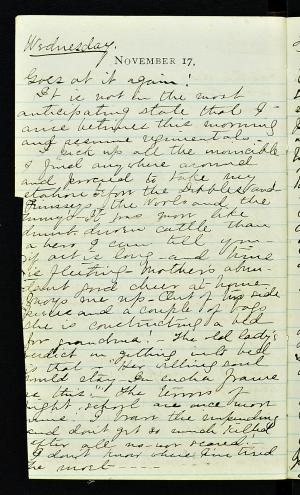 Wednesday.
NOVEMBER 17.
Goes at it again!
It is not in the most
anticipating state that I
arise betimes this morning
and resume regimentals
I pick up all the
I find anywhere around
and proceed to take my
station before the Dibbles and
the Wools and the
It was more like
driven cattle than
a hero I can tell you
if art is long - and time
is fleeting - Mother's
good cheer at home
me up - Out of
and a couple of
she is constructing a bed
for grandma! - The old lady's
on getting into bed
is that "Her willing soul
would stay In such a frame
as this". The terrors of
night, school are once more
mine - I brave the impending
and don't get so much killed
after all no - nor scared! -
I don't know where I'm tired
the most - - - -